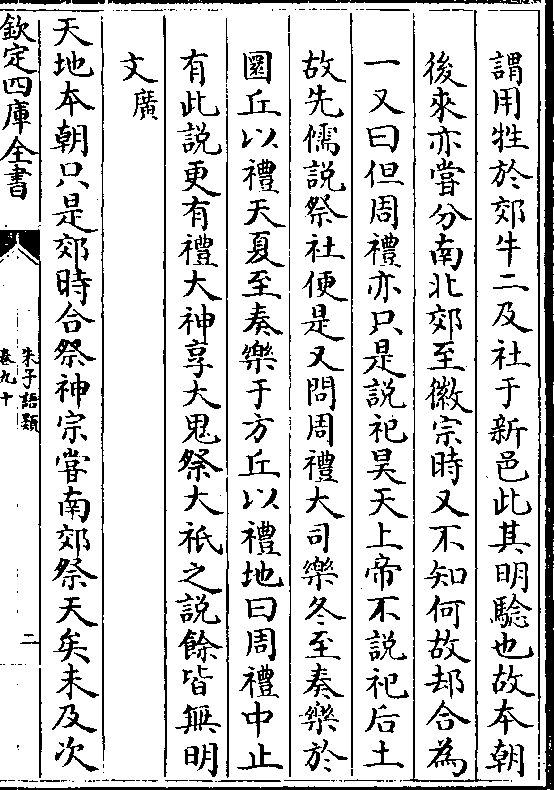 謂用牲於郊牛二及社于新邑此其明驗也故本朝
後來亦嘗分南北郊至徽宗時又不知何故却合為
一又曰但周禮亦只是説祀昊天上帝不説祀后土
故先儒説祭社便是又問周禮大司樂冬至奏樂於
圜丘以禮天夏至奏樂于方丘以禮地曰周禮中止
有此説更有禮大神享大鬼祭大祇之説餘皆無明
文廣
天地本朝只是郊時合祭神宗嘗南郊祭天矣未及次
欽定四庫全書
朱子語類
卷九十
二